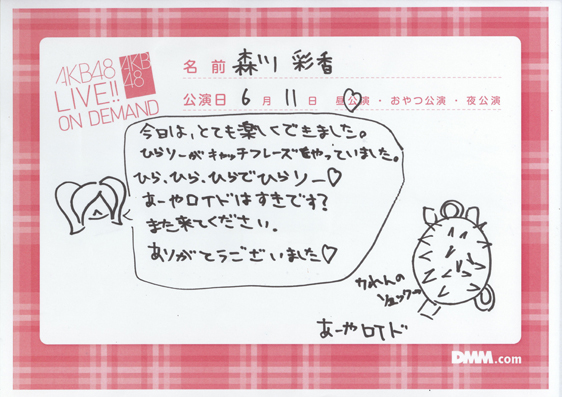 AKB48
LIVE!!
ON DEMAND
AKB
48
名前 森川 彩香
公演日 6月 11日 昼公演・おやつ公演・夜公演
今日は、とても楽しくできました。
ひらりーがキャッチフレーズをやっていました。
ひら、ひら、ひらでひらりー♡
あーやロイドはすきです?
また来てください。
ありがとうございました♡
かれんの
リュック→
あーやロイド
DMM.com